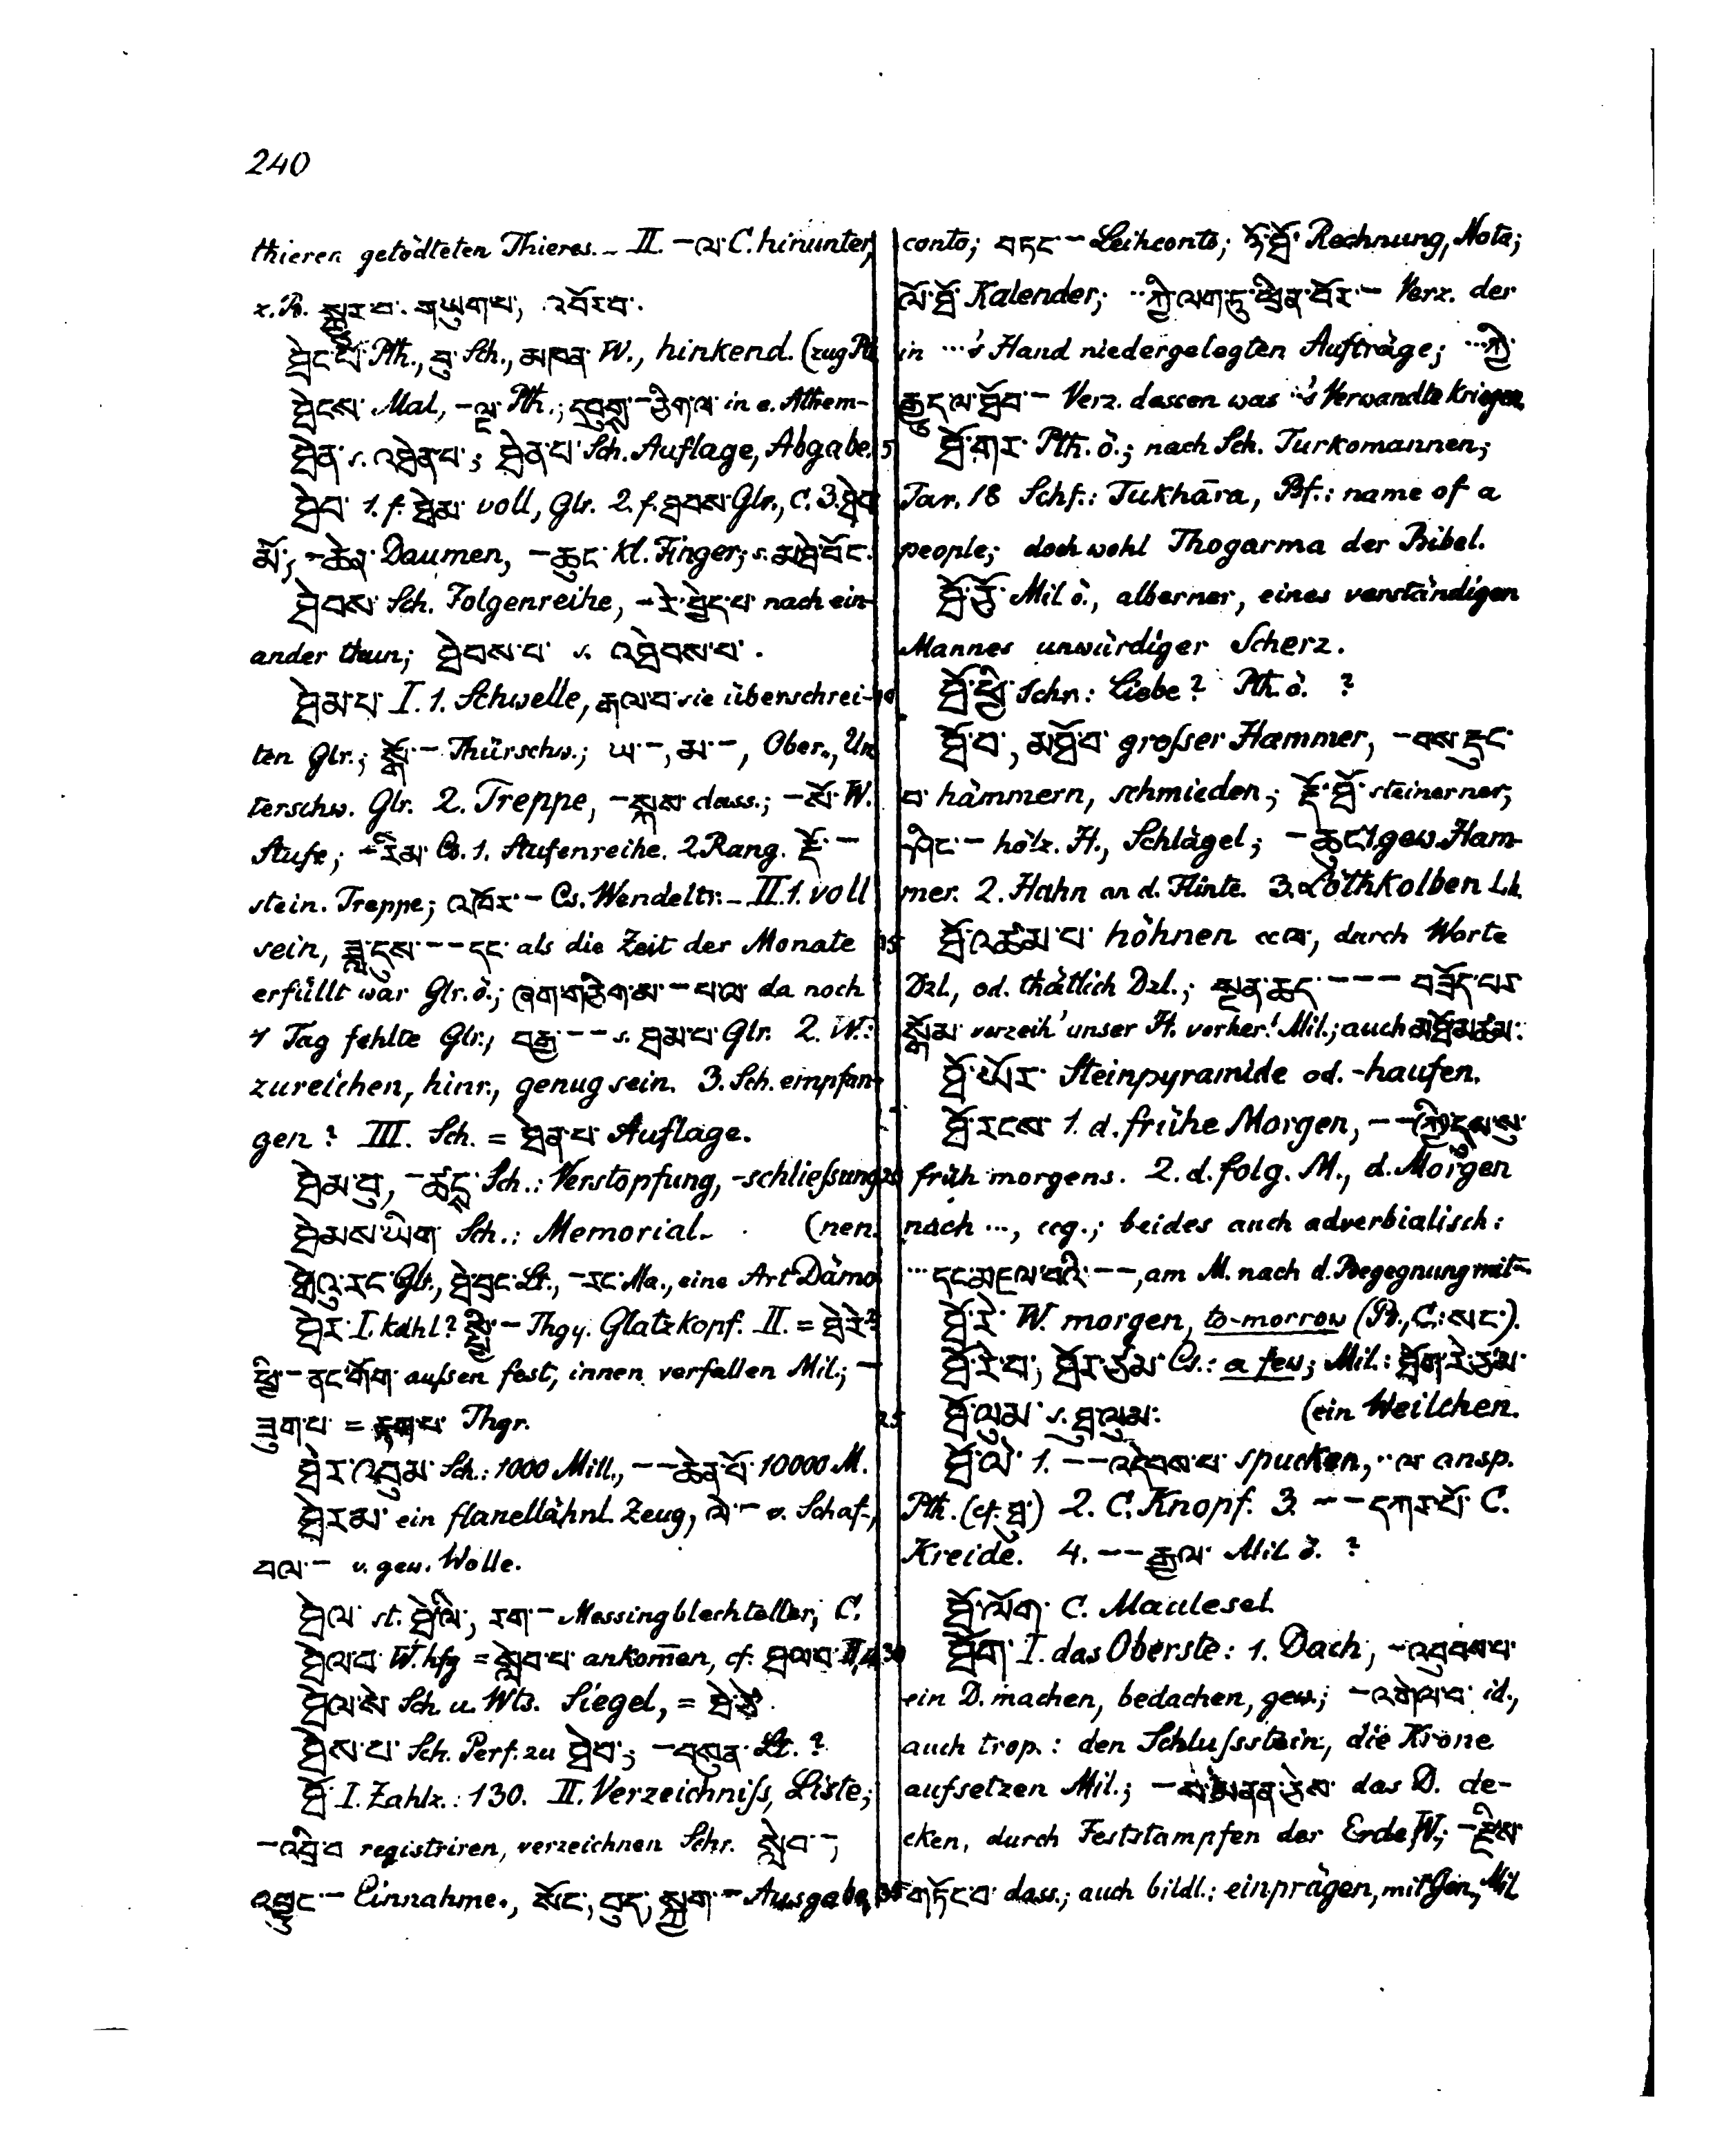 240
thieren getödteten Thieres. – II. – ལ་ C. hinunter,
z. B. སྐུར་བ་ གཡུག་པ་, འབོར་བ་.
ཐེང་པོ་ Pth., བུ་ Sch., མཁན་ W., hinkend. (zug Pth
ཐེངས་ Mal, – ལྔ་ Pth.; དབུགས་ – ཅིག་ལ་ in e. Athem-
ཐེན་ s. འཐེན་པ་; ཐེན་པ་ Sch. Auflage, Abgabe.
ཐེབ་ 1. f. ཐེམ་ voll, Glr. 2. f. ཐེབས་ Glr., C. 3. ཐེབ་
མོ་, – ཆེན་ Daumen, – ཆུང་ kl. Finger; s. མཐེ་བོང་.
ཐེབས་ Sch. Folgenreihe, – རེ་བྱེད་པ་ nach ein-
ander thun; ཐེབས་པ་ s. འཐེབས་པ་.
ཐེམ་པ་ I. 1. Schwelle, རྒལ་བ་ sie überschrei-
ten Glr.; སྒོ་ – Thürschw.; ཡ་ –, མ་ –, Ober-, Un
terschw. Glr. 2. Treppe, – སྐས་ dass.; – སོ་ W.
Stufe; – རིམ་ Cs. 1. Stufenreihe. 2 Rang. རྡོ་ –
stein. Treppe; འཁོར་ – Cs. Wendeltr. – II. 1. voll
sein, ཟླ་དུས་ – – དང་ als die Zeit der Monate
erfüllt war Glr. ö.; ཞག་གཅིག་མ་ – པལ་ da noch
1 Tag fehlte Glr.; བརྒྱ་ – – s. ཐམ་པ་ Glr. 2. W.:
zureichen, hinr., genug sein. 3. Sch. empfan-
gen? III. Sch. = ཐེན་པ་ Auflage.
ཐེམ་བུ་, – ཚད་ Sch.: Verstopfung, -schließung
ཐེམས་ཡིག་ Sch.: Memorial. (nen.
ཐེའུ་རང་ Glr., ཐེ་བྲང་ Lt., – རང་ Ma., eine Art Dämo
ཐེར་ I. kahl? སྤྱི་ – Thgy. Glatzkopf. II. = ཐེ་རེ་?
ཕྱི་ – ནང་གོག་ außen fest, innen verfallen Mil.; –
ཟུག་པ་ = རྟག་པ་ Thgr.
ཐེར་འབུམ་ Sch.: 1000 Mill., – – ཆེན་པོ་ 10000 M.
ཐེར་མ་ ein flanellähnl. Zeug, ལེ་ – v. Schaf-,
བལ་ – v. gew. Wolle.
ཐེལ་ st. ཐེ་ལི་, རག་ – Messingblechteller, C.
ཐེལ་བ་ W. hfg = སླེབ་པ་ ankom̄en, cf. ཐལ་བ་ II,4
ཐེལ་སེ་ Sch. u. Wts. Siegel, = ཐེ་ཙེ་.
ཐེས་པ་ Sch. Perf. zu ཐེབ་; – བསུན་ Lt. ?
ཐོ་ I. Zahlz.: 130. II. Verzeichniß, Liste;
– འབྲི་བ་ registriren, verzeichnen Schr. སླེབ་ –,
འབྱུང་ – Einnahme., སོང་, བུད་, སྐྱག་ – Ausgabe,
conto; བཏང་ – Leihconto; རྩི་ཐོ་ Rechnung, Nota;
ལོ་ཐོ་ Kalender; ··ཀྱི་ལག་ཏུ་ཕྲིན་བོར་ – Verz. der
in ···'s Hand niedergelegten Aufträge; ···ཀྱི་
རྒྱུད་ལ་ཐོབ་ – Verz. dessen was ··'s Verwandte kriegen.
ཐོ་གར་ Pth. ö.; nach Sch. Turkomannen;
Tar. 18 Schf.: Tukhāra, Bf.: name of a
people; doch wohl Thogarma der Bibel.
ཐོ་ཅོ་ Mil ö., alberner, eines verständigen
Mannes unwürdiger Scherz.
ཐོ་ཕྱི་ Schn: Liebe? Pth. ö. ?
ཐོ་བ་, མཐོ་བ་ großer Hammer, – བས་རྡུང་
བ་ hämmern, schmieden; རྡོ་ཐོ་ steinerner,
ཤིང་ – hölz. H., Schlägel; – ཆུང་ 1 gew. Ham-
mer. 2. Hahn an d. Flinte. 3. Löthkolben Lh.
ཐོ་འཚམ་པ་ höhnen ccལ་, durch Worte
Dzl., od. thätlich Dzl.; སྔན་ཆད་ – – – བཟོད་པར་
སྒོམ་ verzeih' unser H. vorher! Mil.; auch མཐོ་མཚམ་.
ཐོ་ཡོར་ Steinpyramide od. -haufen.
ཐོ་རངས་ 1. d. frühe Morgen, – – (ཀྱི་)དུས་སུ་
früh morgens. 2. d. folg. M., d. Morgen
nach ···, ccg.; beides auch adverbialisch:
···དང་མཇལ་བའི་ – –, am M. nach d. Begegnung mit ··.
ཐོ་རེ་ W. morgen, to-morrow (B., C.: སང་).
ཐོ་རེ་བ་, ཐོར་ཙམ་ Cs.: a few; Mil.: ཐོག་རེ་ཙམ་
ཐོ་ལུམ་ s. ཐུ་ལུམ་. (ein Weilchen.
ཐོ་ལེ་ 1. – – འདེབས་པ་ spucken, ··ལ་ ansp.
Pth. (cf. ཐུ་) 2. C. Knopf. 3. – – དཀར་པོ་ C.
Kreide. 4. – – རྒྱལ་ Mil. ö. ?
ཐོ་ལོག་ C. Maulesel.
ཐོག་ I. das Oberste: 1. Dach, – འབུབས་པ་
ein D. machen, bedachen, gew.; – འགེལ་བ་ id.,
auch trop.: den Schlußstein, die Krone
aufsetzen Mil.; – das D. de-
cken, durch Feststampfen der Erde W.; –
གཏོང་བ་ dass.; auch bildl.: einprägen, mit Gen, Mil